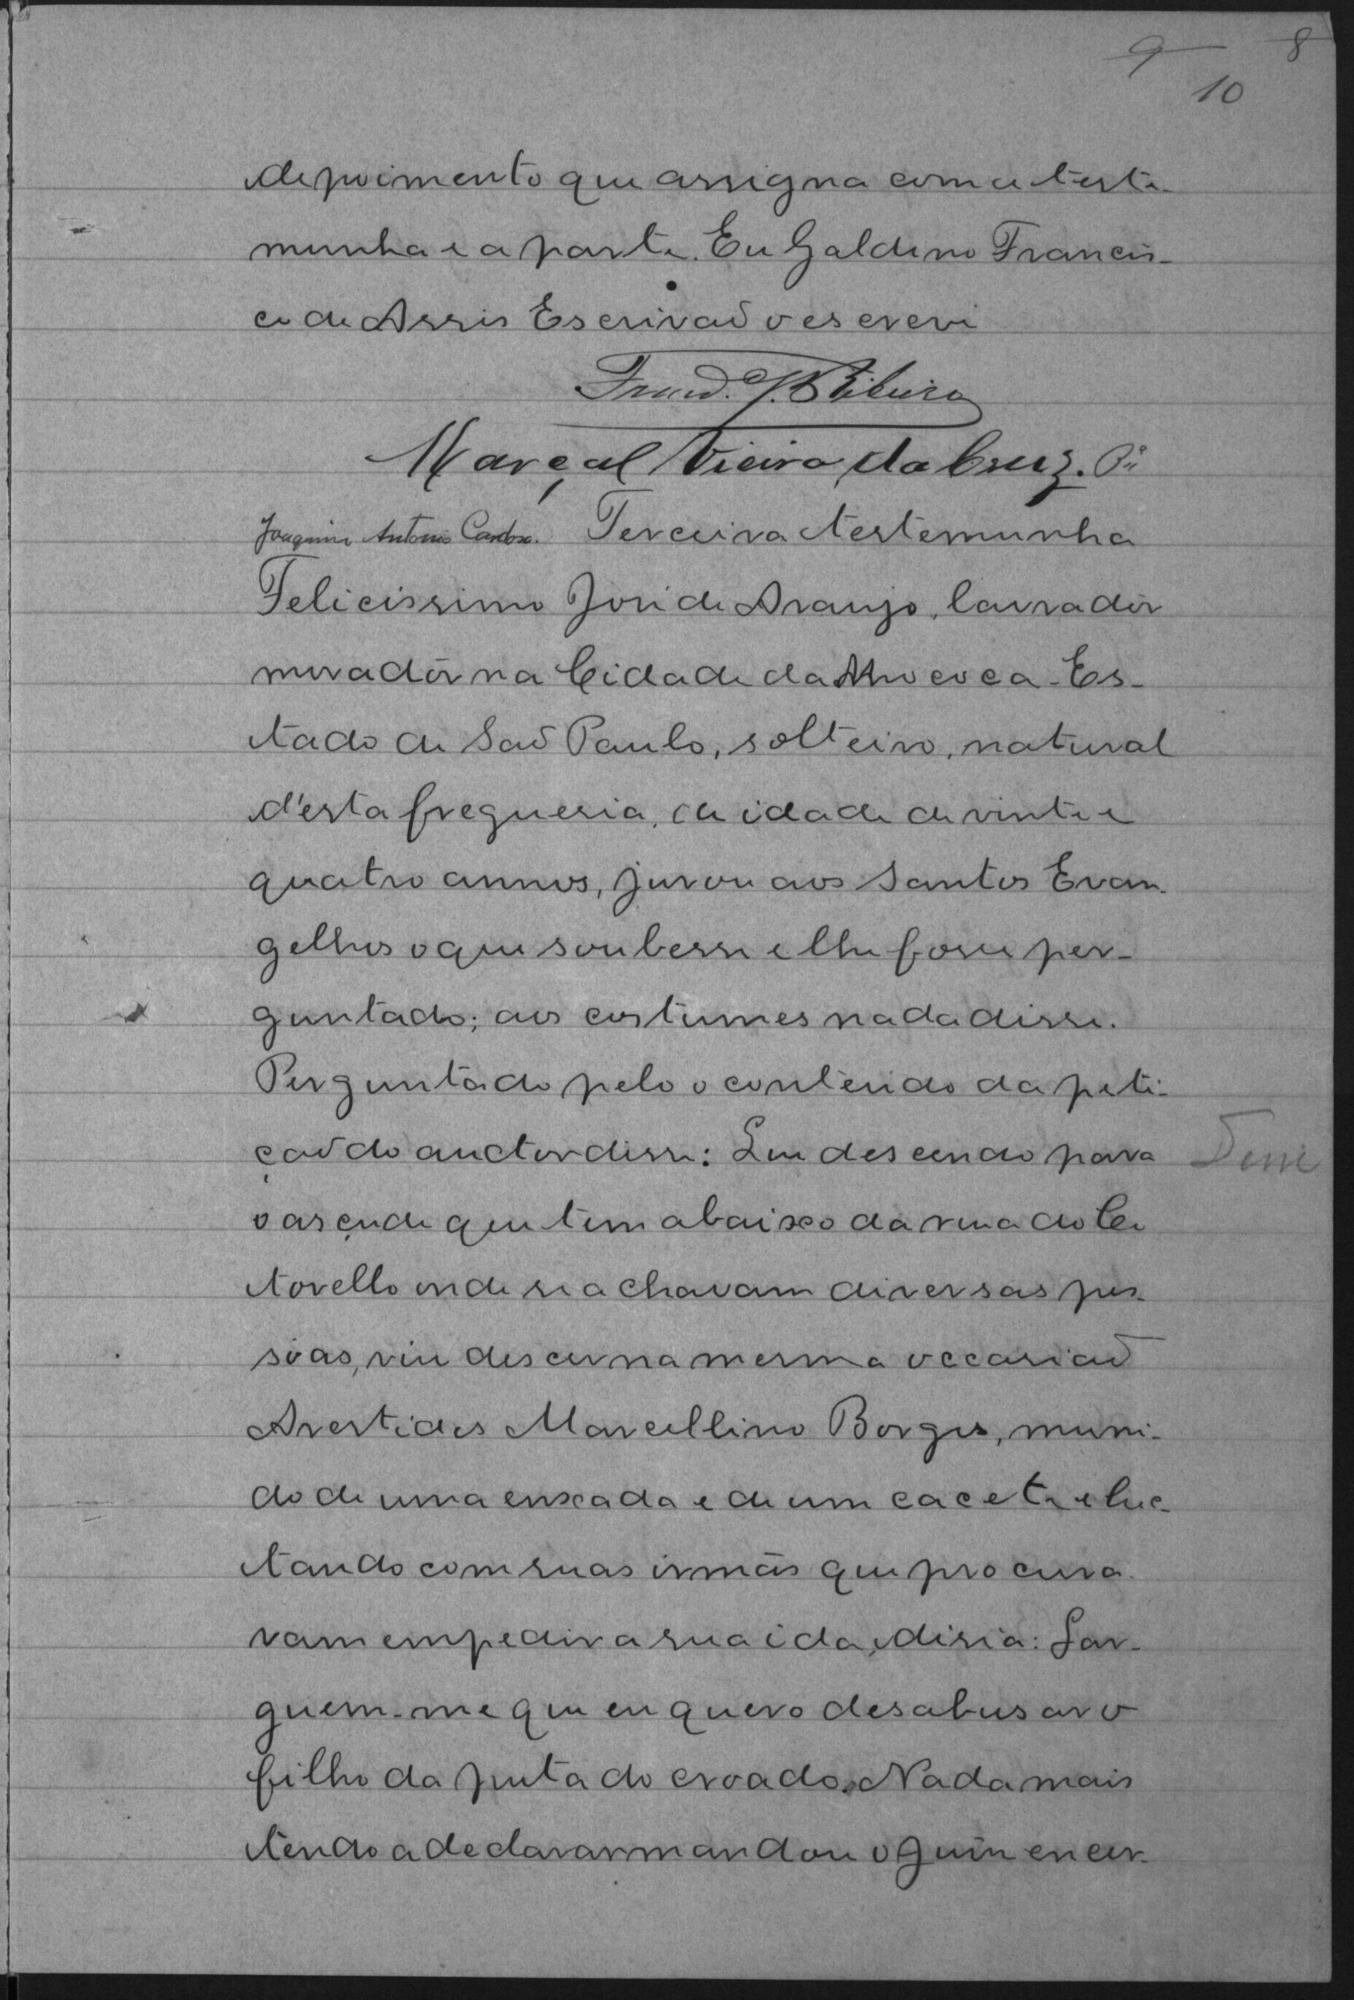 9 8
10
depoimento que assigna com a teste-
munha e a parte. Eu Galdino Francis-
co de Assis Escrivaõ o escrevi
Ribeiro
Marçal Vieira da Cruz.
Joaquim Antonio Cardoso. Terceira testemunha
Felicissimo José de Araujo, lavradôr
moradôr na Cidade da Mococa - Es-
tado de Saõ Paulo, solteiro, natural
d'esta freguesia, de idade de vinte e
quatro annos, jurou aos Santos Evan-
gelhos o que soubesse e lhe fosse per-
guntado; aos costumes nada disse.
Perguntado pelo o conteúdo da peti-
çaõ do auctor disse: Que descendo para
o açude que tem abaixo da rua do Co
tovello onde se achavam diversas pes-
sôas, viu descer na mesma occasiaõ
Arestides Marcellino Borges, muni-
do de uma enxada e de um cacete e luc-
tando com suas irmãs que procura-
vam empedir a sua ida, disia: Lar-
guem-me que eu quero desabusar o
filho da puta do croado. Nada mais
tendo a declarar mandou o Juiz encer-